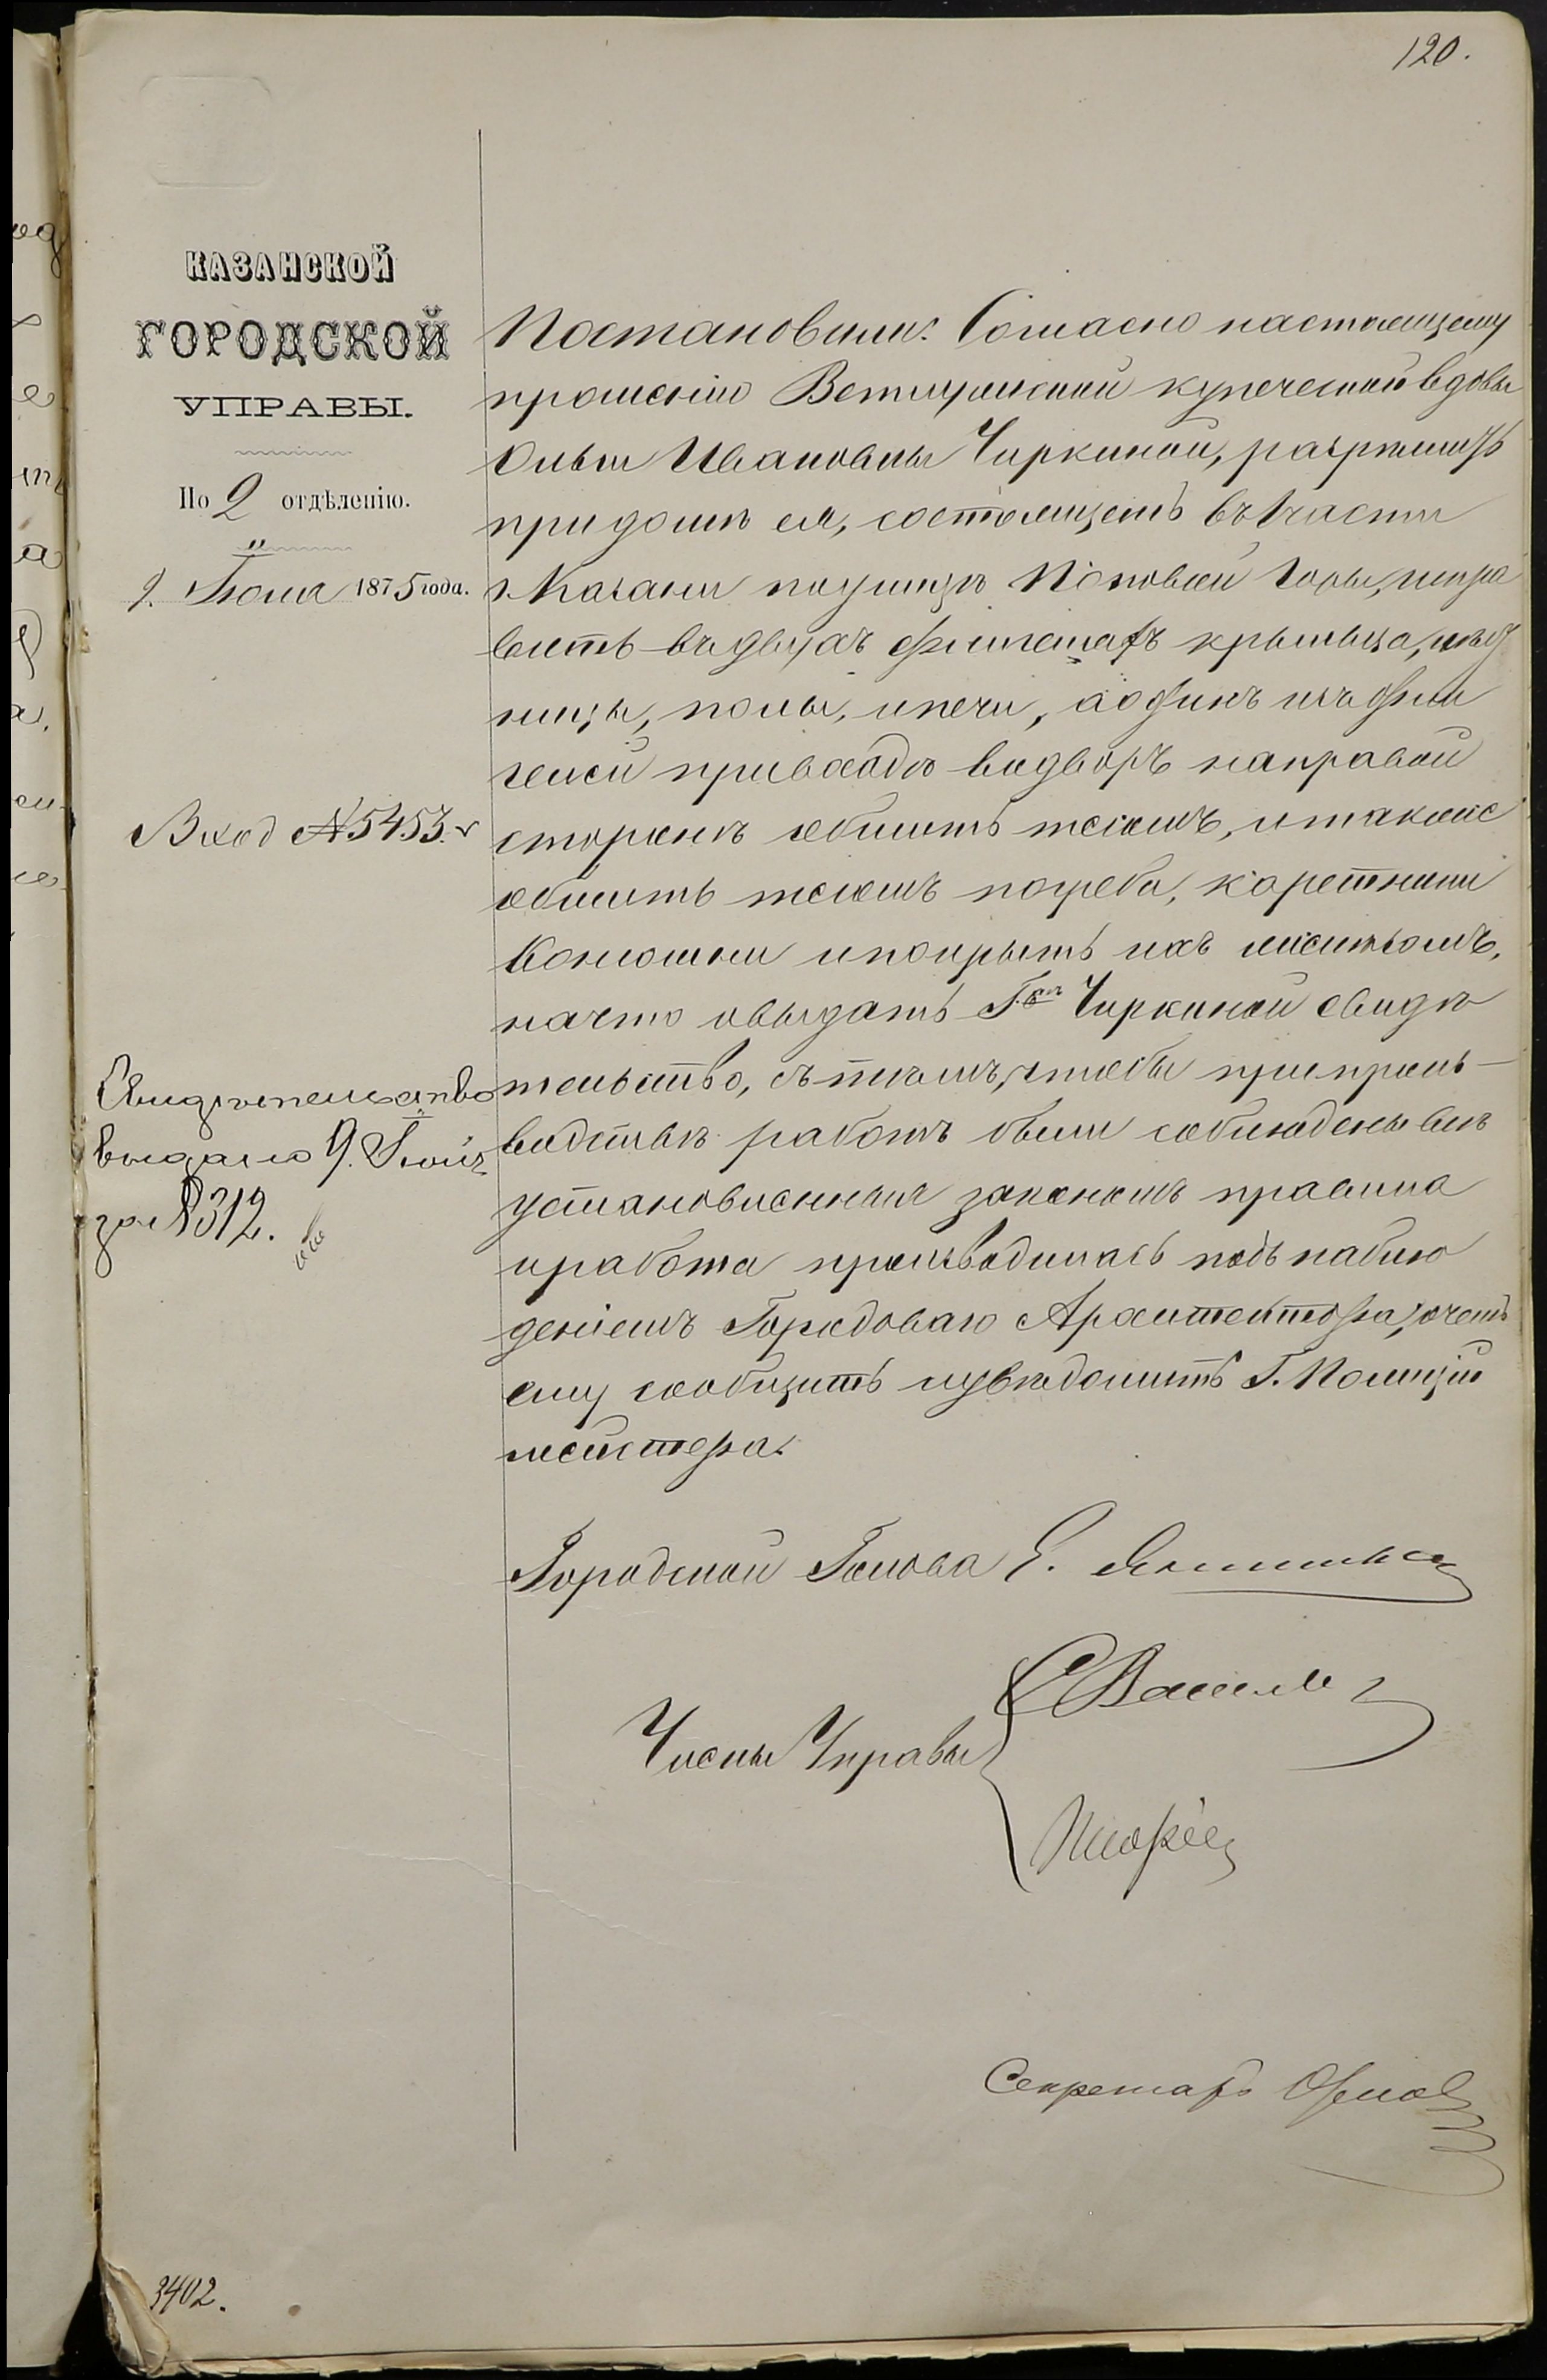 120.
КАЗАНСКОЙ
ГОРОДСКОЙ
УПРАВЫ.
По 2 отдѣленію.
9. Іюля 1875 года.
Вход №5453.
Свидѣтельство
выдано 9. Іюля
за №312.
Постановили: Согласно настоящему
прошенію Ветлужской купеческой вдовы
Ольги Ивановны Чиркиной, разрѣшить
при домѣ ея, состоящемъ въ 1 части
г. Казани по улицѣ Поповой Горы, испра
вить въ двухъ флигеляхъ крыльца,
ницы, полы, и печи, а одинъ изъ фли
гелей при входѣ во дворъ на правой
сторонѣ обшить тесомъ, и также
обшить тесомъ погреба, каретники
конюшни и покрыть ихъ желѣзомъ,
на что и выдать Г-жѣ Чиркиной свидѣ
тельство, съ тѣмъ, чтобы при произ-
водствѣ работъ были соблюдены всѣ
установленныя закономъ правила
и работа производилась подъ наблю
деніемъ Городоваго Архитектора, о чемъ
ему сообщить и увѣдомить Г. Полиціи
мейстера.
Городской Голова Е.
Члены Управы
Секретарь Орлов
3402.